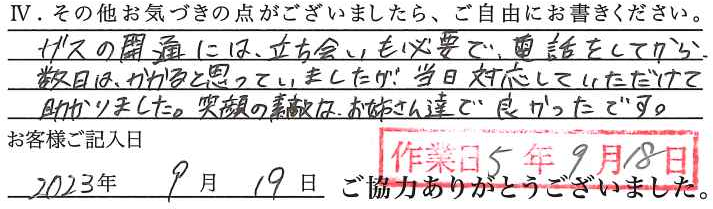 Ⅳ．その他お気づきの点がございましたら、ご自由にお書きください。
ガスの開通には、立ち会いも必要で、電話をしてから、
数日は、かかると思っていましたが、当日対応していただけて
助かりました。笑顔の素敵な、お姉さん達で良かったです。
お客様ご記入日
作業日 5年 9月 18日
2023年 9月 19日 ご協力ありがとうございました。